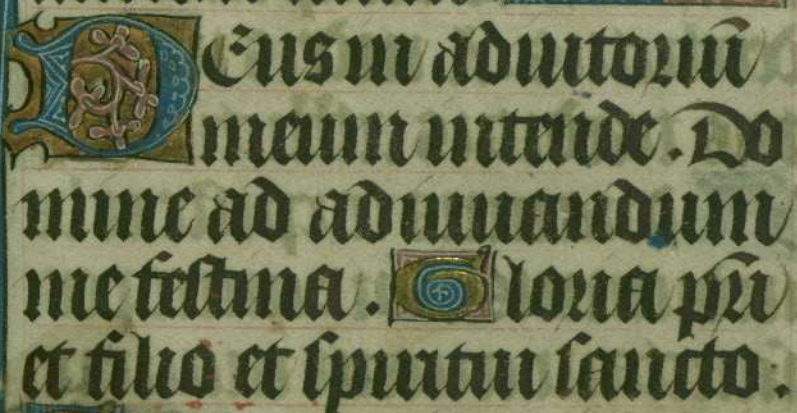 Deus in adiutoriū
meum intende. Do
mine ad adiuuandum
me festina. Gloria pr̄i
et filio et spiritui sancto.